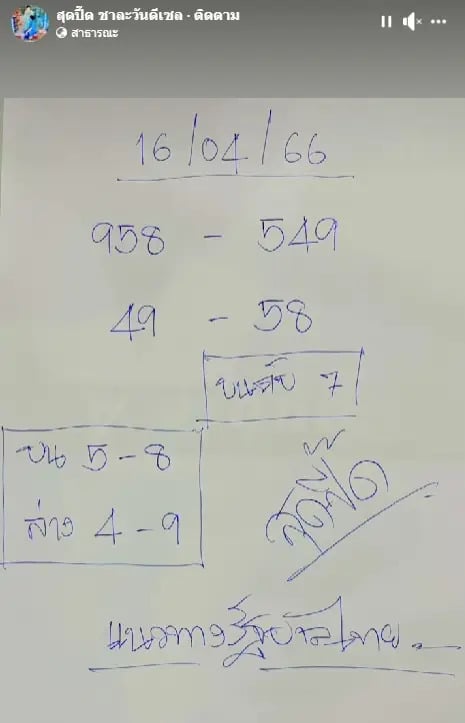 สุดปี๊ด ชาละวันดีเซล · ติดตาม
สาธารณะ
16/04/66
958 - 549
49 - 58
บนดับ 7
บน 5-8
ล่าง 4-9
สุดปี๊ด
แนวทางรัฐบาลไทย